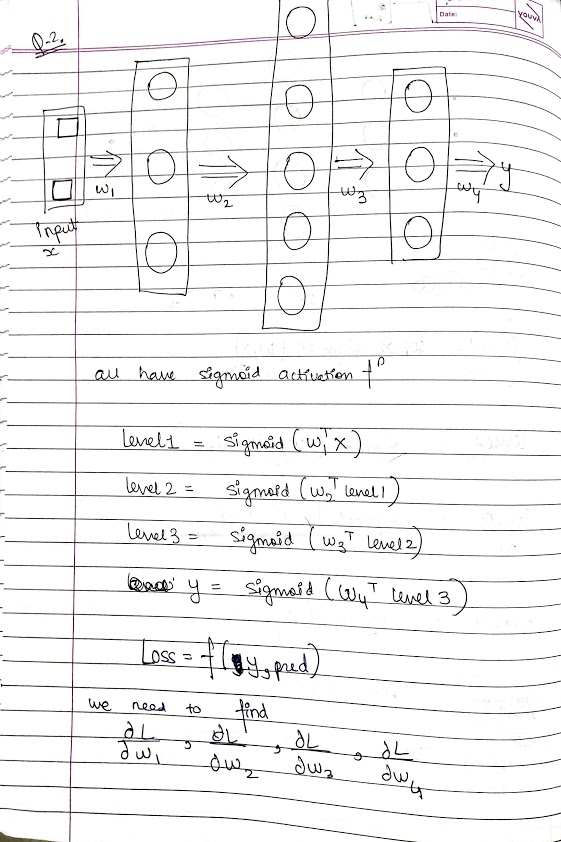 Date:
YOUVA
Q-2.
w₁
w₂
w₃
w₄
y
Input
x
all have sigmoid activation fⁿ
Level 1 = sigmoid (w₁ᵀ x)
level 2 = sigmoid (w₂ᵀ level 1)
Level 3 = sigmoid (w₃ᵀ level 2)
y = sigmoid (w₄ᵀ level 3)
Loss = f(y, pred)
we need to find
∂L/∂w₁, ∂L/∂w₂, ∂L/∂w₃, ∂L/∂w₄